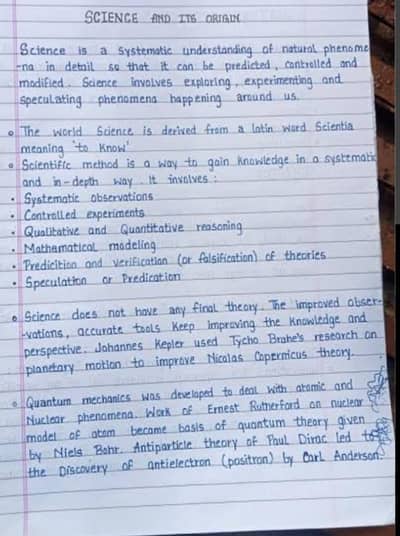 SCIENCE AND ITS ORIGIN
Science is a systematic understanding of natural phenome
-na in detail so that it can be predicted, controlled and
modified. Science involves exploring, experimenting and
speculating phenomena happening around us.
o The world Science is derived from a latin word Scientia
meaning 'to Know'
o Scientific method is a way to gain knowledge in a systematic
and in-depth way. It involves:
• Systematic observations
• Controlled experiments
• Qualitative and Quantitative reasoning
• Mathematical modeling
• Predicition and verification (or falsification) of theories
• Speculation or Predication
o Science does not have any final theory. The improved obser-
-vations, accurate tools Keep improving the Knowledge and
perspective. Johannes Kepler used Tycho Brahe's research on
planetary motion to improve Nicolas Copernicus theory.
o Quantum mechanics was developed to deal with atomic and
Nuclear phenomena. Work of Ernest Rutherford on nuclear
model of atom became basis of quantum theory given
by Niels Bohr. Antiparticle theory of Paul Dirac led to
the Discovery of antielectron (positron) by Carl Anderson.